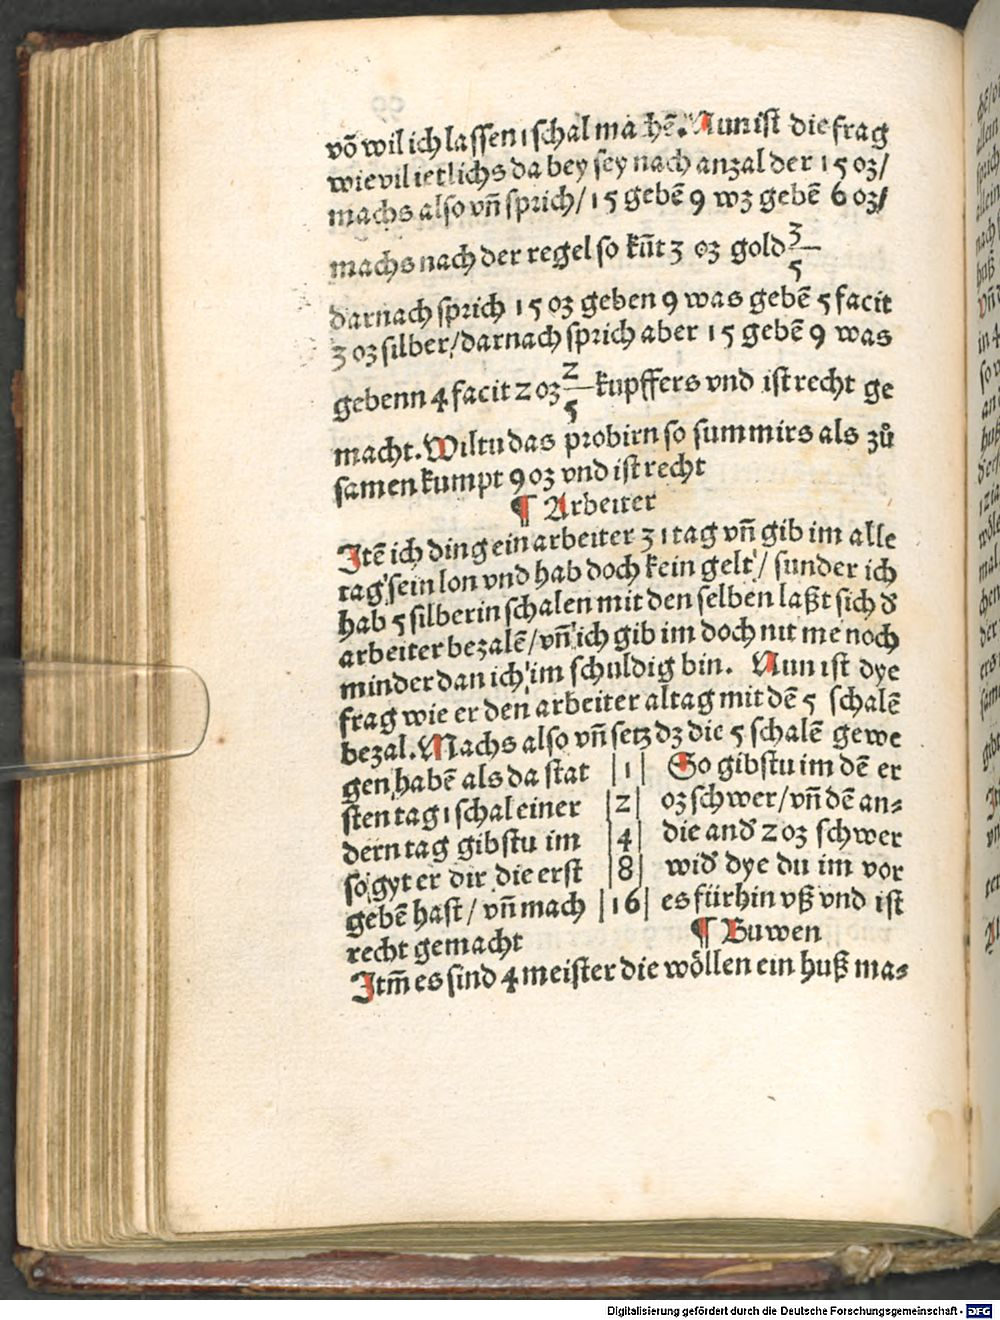 vō wil ich lassen 1 schal machē. Nun ist die frag
wie vil ietlichs da bey sey nach anzal der 15 oz/
machs also vn̄ sprich/ 15 gebē 9 wz gebē 6 oz/
machs nach der regel so kūt 3 oz gold 3/5
darnach sprich 15 oz geben 9 was gebē 5 facit
3 oz silber/ darnach sprich aber 15 gebē 9 was
gebenn 4 facit 2 oz 2/5 kupffers vnd ist recht ge
macht. Wiltu das probirn so summirs als zů
samen kumpt 9 oz vnd ist recht
¶ Arbeiter
Itē ich ding ein arbeiter 31 tag vn̄ gib im alle
tag sein lon vnd hab doch kein gelt/ sunder ich
hab 5 silberin schalen mit den selben laßt sich d̕
arbeiter bezalē/ vn̄ ich gib im doch nit me noch
minder dan ich im schuldig bin. Nun ist dye
frag wie er den arbeiter altag mit dē 5 schalē
bezal. Machs also vn̄ setz dz die 5 schalē gewe
gen habē als da stat |1| So gibstu im dē er
sten tag 1 schal einer |2| oz schwer/ vn̄ dē an=
dern tag gibstu im |4| die and̕ 2 oz schwer
so gyt er dir die erst |8| wid̕ dye du im vor
gebē hast/ vn̄ mach |16| es fürhin vß vnd ist
recht gemacht ¶ Buwen
Itm̄ es sind 4 meister die wöllen ein huß ma=
Digitalisierung gefördert durch die Deutsche Forschungsgemeinschaft - DFG